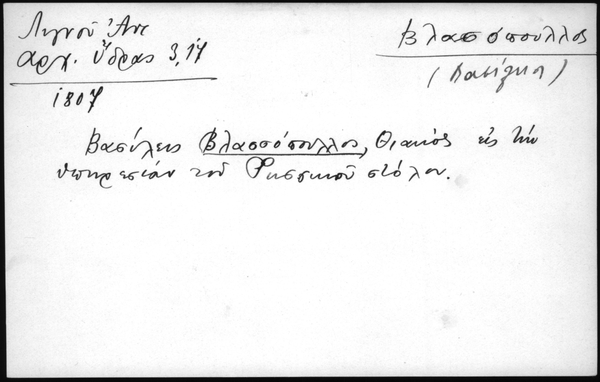 Λιγνού Ἀντ
αρχ. Ὕδρας 3,17
1807
Βλασσόπουλλος
(Βασίλης)
Βασίλεις Βλασσόπουλλος, Θιακός εις τήν
υπηρεσίαν του Ρωσσικού στόλου.